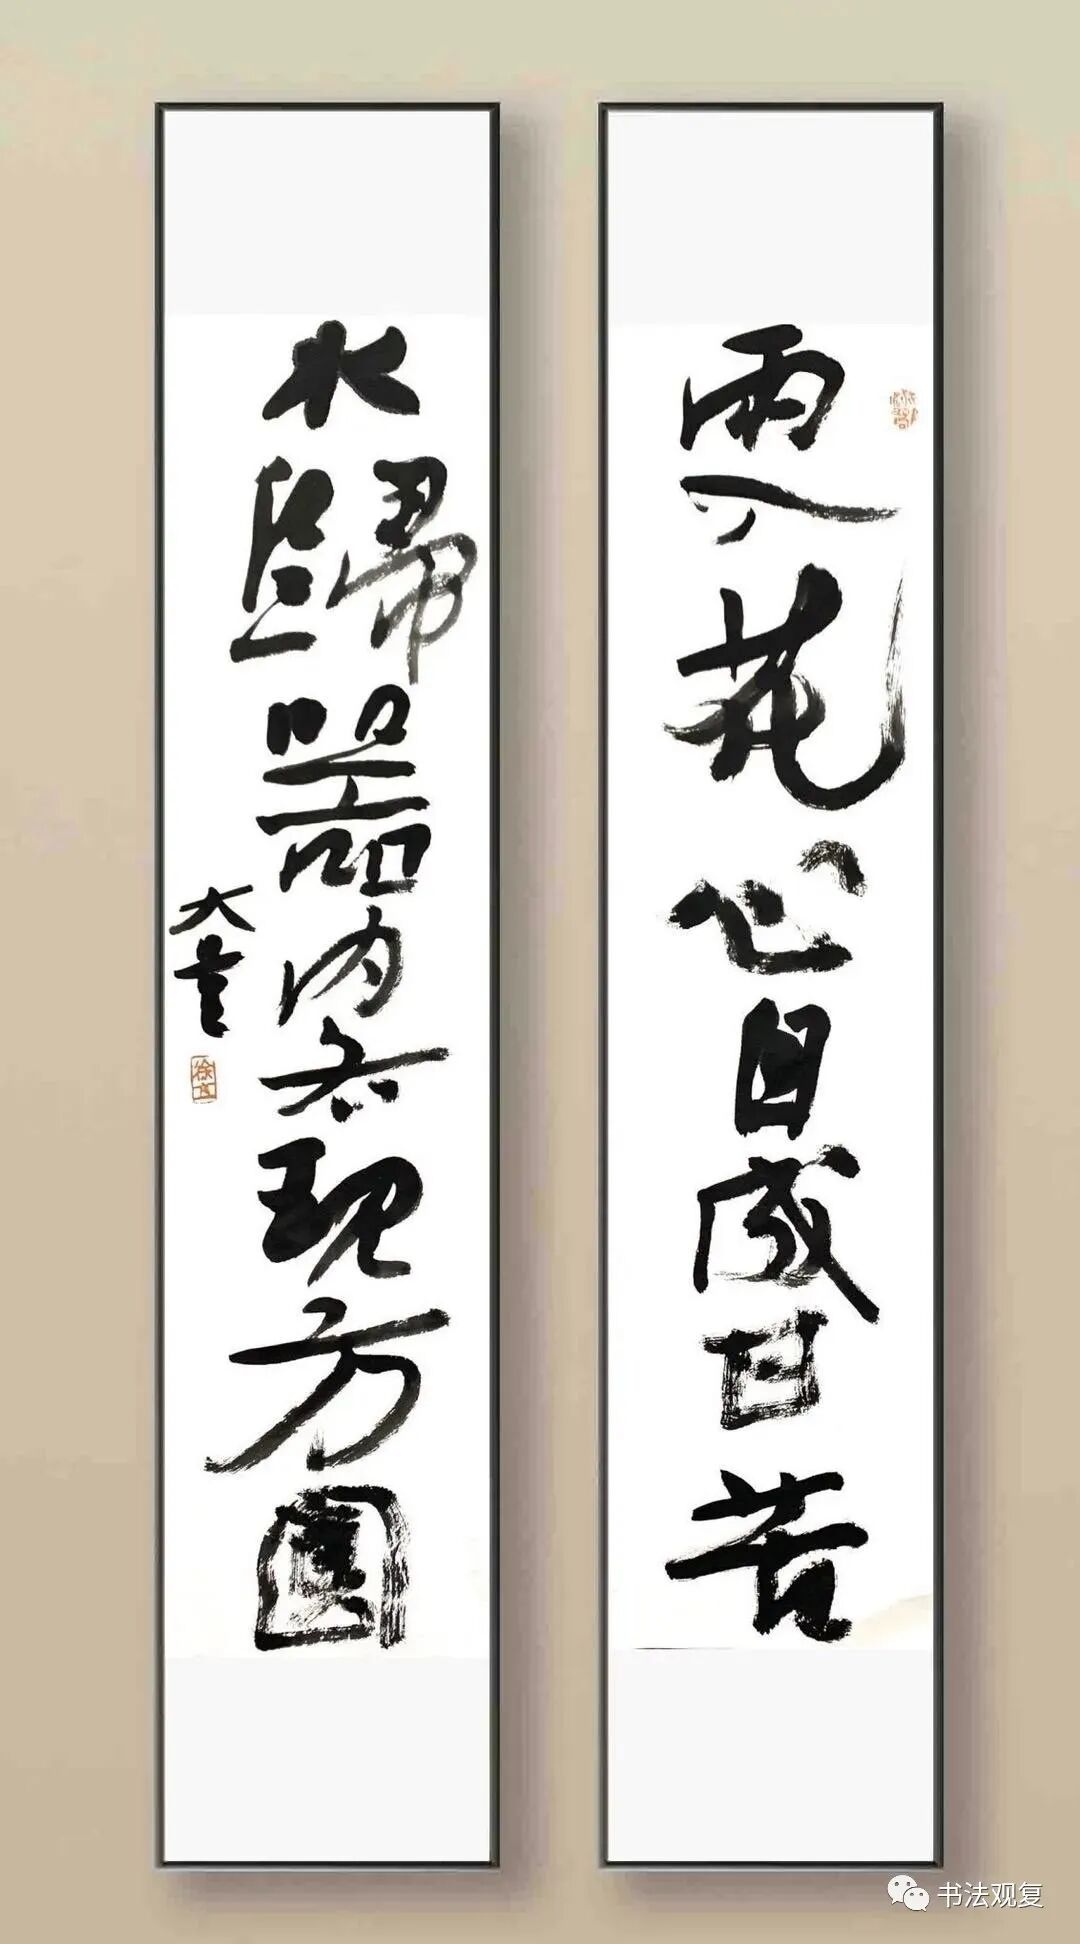 雨入花心自成甘苦
水歸器内各現方圓
大
书法观复